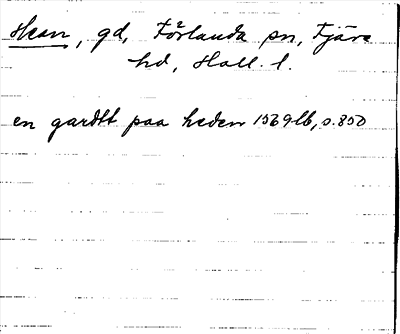 Hean, gd, Förlanda sn, Fjäre
hd, Hall. l.
en gardtt paa heden 1569 lb, s. 850